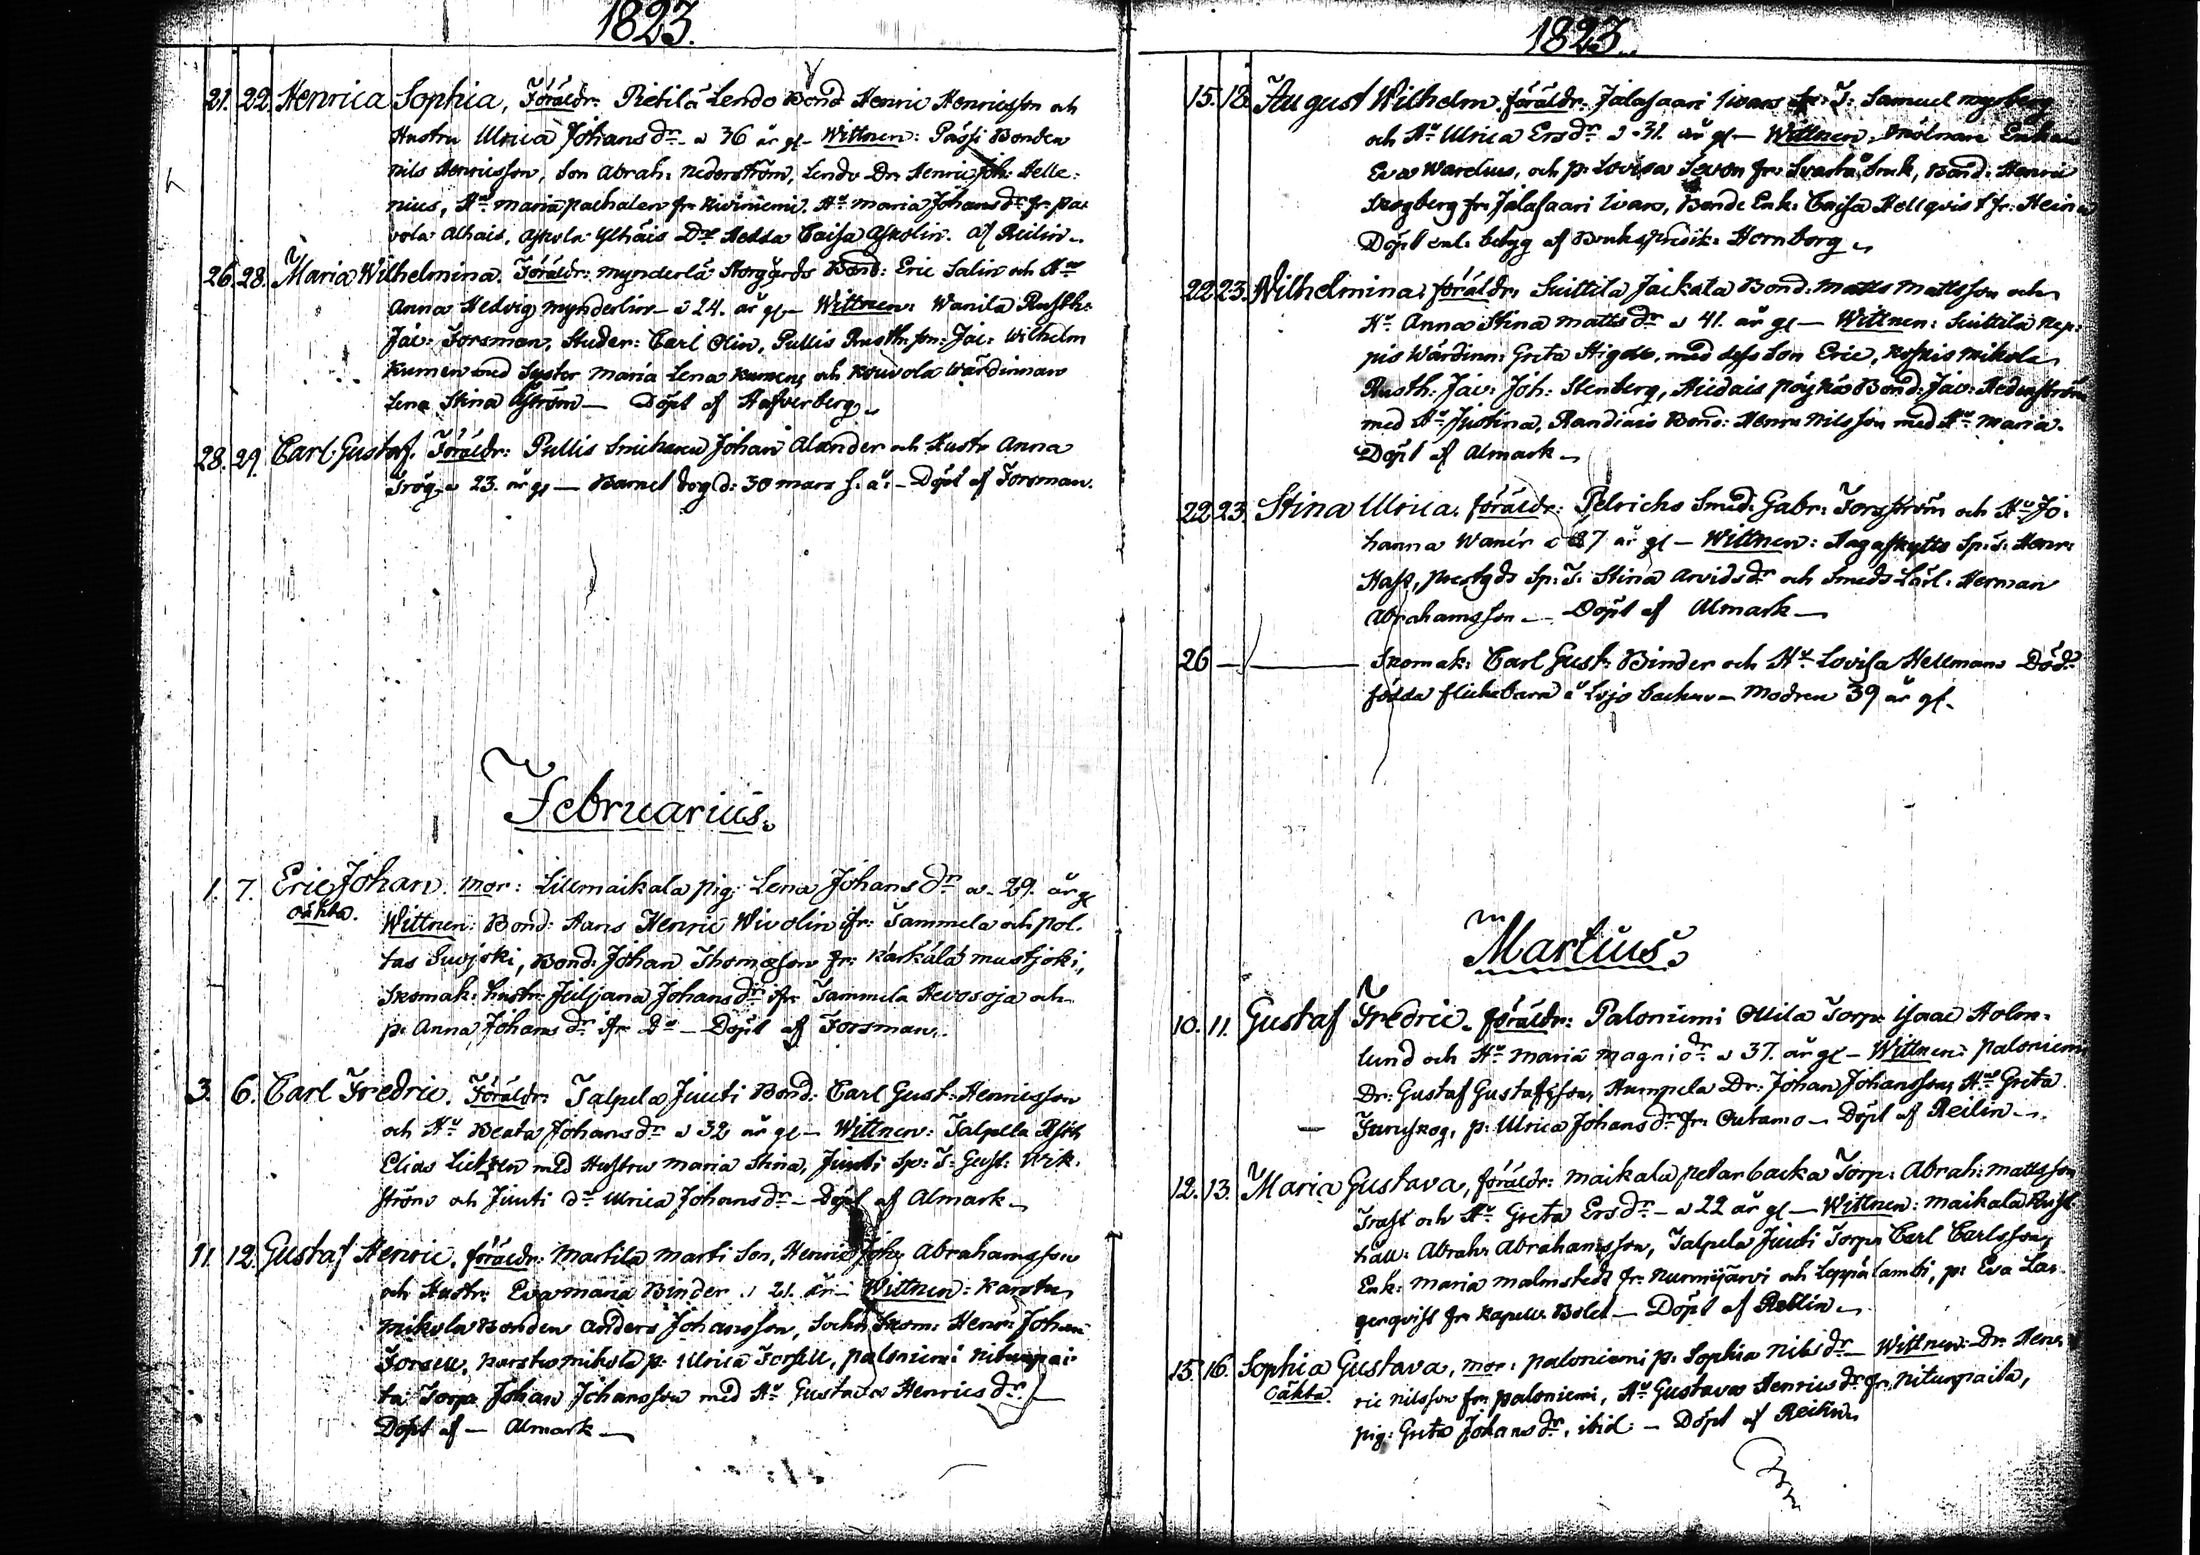 1823.
21. 22. Henrica Sophia, Föräldr: Pietilä Lendo Bond Henric Henricsson och
Hustru Ulrica Johans dr. a 36 år gl – Wittnen: Passi Bonden
Nils Henricsson, Son Abrah: Nederström, Lendo Dr. Henric Joh: Helle:
nius, Hu. Maria Pachalen fr. Niviniemi. Hu. Maria Johans dr. fr. Pa:
vola Alhais, Ylhäis Dr. Hedda Caisa Askolin. af Reilin.
26. 28. Maria Wilhelmina. Föräldr: Mynderlä Storgårds Bond: Eric Salin och Hu.
Anna Hedvig Mynderlin – a 24. år gl – Wittnen: Wanila Rusth:
Jac: Forsman, Studer: Carl Olin, Pullis Rusth. son: Jac: Wilhelm
Kumen med Syster Maria Lena Kumen, och Kouvola Wärdinnan
Lena Stina Åström – Döpt af Hafverberg.
28. 29. Carl Gustaf. Föräldr: Pullis Johan Alander och Hustr. Anna
Frög. a 23. år gl – Barnet dog d: 30 Mars s. å. – Döpt af Forsman.
Februarius.
1. 7. Eric Johan. Mor: Lillmaikala pig: Lena Johans dr. a. 29. år gl
oäkta. Wittnen: Bond: Hans Henric Wivolin ifr: Sammela och Pol:
tas Suojoki, Bond: Johan Thomasson fr: Kärkälä Mustjoki,
Skomak: hustr: Juljana Johans dr. ifr. Sammela Hevosoja och
p. Anna Johans dr. ifr. Do – Döpt af Forsman.
3. 6. Carl Fredric. Föräldr: Talpela Juuti Bond: Carl Gust: Henricsson
och Hu. Beata Johans dr. a 32 år gl – Wittnen: Talpela Rsth
Elias med Hustru Maria Stina, Juuti Sp: T: Gust: Wik:
ström och Juuti dr. Ulrica Johans dr. – Döpt af Almark –
11. 12. Gustaf Henric. föräldr: Martila Marti Son, Henric Joh: Abrahamsson
och Hustr: Eva Maria Binder a 21. år – Wittnen: Karstu
Mikola Bonden Anders Johansson, Sockn Skom: Henr: Johan
Forsell, Karstu Mikola p: Ulrica Forsell, Paloniemi Nitunpai:
ta Torp: Johan Johansson med Hu. Gustava Henrics dr. –
Döpt af – Almark –
1823.
15. 18. August Wilhelm. föräldr: Jalasaari Iivars T: Samuel Nyberg
och Hu. Ulrica Ers dr. a 31. år gl – Wittnen: Mölnare Enkan
Eva Warelius, och p. Lovisa Sevon fr: Svartå bruk, Bond: Henric
Skogberg fr. Jalasaari Iivars, Bonde Enk: Caisa Hellqvist fr: Heina
Döpt enl: betyg af Bruks Predik: Hornborg.
22. 23. Wilhelmina. föräldr: Suittila Jaickala Bond: Matts Mattsson och
Hu. Anna Stina Matts dr. a 41. år gl – Wittnen: Suittila Nep:
pis Wärdinn: Greta, med dess Son Eric, Koskis Mikola
Rusth: Jac: Joh: Stenberg, Hiidais Pöykiö Bond: Jac: Hedenström
med Hu. Justina, Randiais Bond: Henr: Nilsson med Hu. Maria.
Döpt af Almark –
22. 23. Stina Ulrica. föräldr: Petrichs Smed: Gabr: Forsström och Hu. Jo:
hanna Wanér a 37 år gl – Wittnen: Hagaskytts Sp: T: Henr:
Hast, Prestgds Sp: T: Stina Arvids dr. och Smeds Lärl: Herman
Abrahamsson – Döpt af Almark –
26 – Skomak: Carl Gust: Binder och Hu. Lovisa Hellmans Död:
födda flickebarn å Lojo backar – Modren 39 år gl.
Martius.
10. 11. Gustaf Fredric. föräldr: Paloniemi Ollila Torp: Isaac Holm:
lund och Hu. Maria Magni dr. a 37. år gl – Wittnen: Paloniemi
Dr: Gustaf Gustafsson, Humpela Dr: Johan Johansson, Hu. Greta
Furuskog, p: Ulrica Johans dr. fr: Outamo – Döpt af Reilin –
12. 13. Maria Gustava, föräldr: Maikala Petar backa Torp: Abrah: Mattsson
Trast och Hu. Greta Ers dr. – a 22 år gl – Wittnen: Maikala Rust
håll: Abrah: Abrahamsson, Talpela Juuti Torp: Carl Carlsson,
Enk: Maria Malmstedt fr. Nurmijärvi och Leppälambi, p: Eva La:
gerqvist fr. Kapell. Bolet – Döpt af Reilin –
15. 16. Sophia Gustava, mor: Paloniemi p: Sophia Nils dr. – Wittnen: Dr. Hen:
oäkta. ric Nilsson fr. Paloniemi, Hu. Gustava Henrics dr. fr. Nitunpaita,
pig: Greta Johans dr. ibid: – Döpt af Reilin.